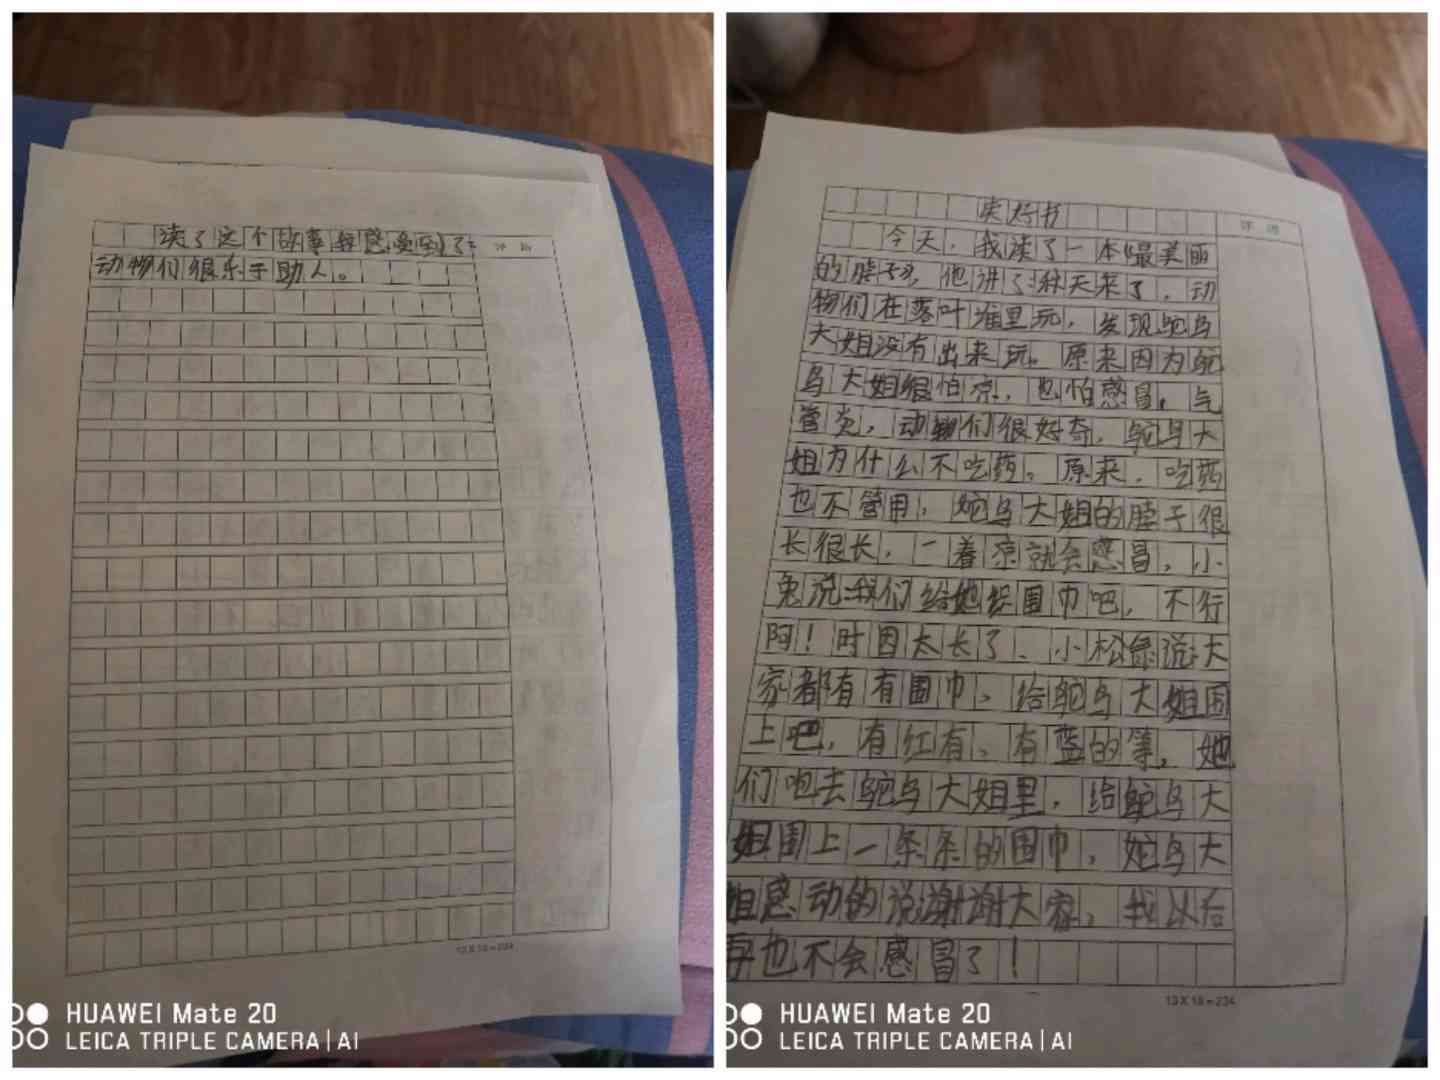 读了这个故事我感受到了：
评语
动物们很乐于助人。
13X18=234
HUAWEI Mate 20
LEICA TRIPLE CAMERA | AI
读好书
评语
今天，我读了一本《最美丽
的脖子》，他讲了：秋天来了，动
物们在落叶堆里玩，发现鸵鸟
大姐没有出来玩。原来因为鸵
鸟大姐很怕凉，也怕感冒，气
管炎，动物们很好奇，鸵鸟大
姐为什么不吃药。原来，吃药
也不管用，鸵鸟大姐的脖子很
长很长，一着凉就会感冒，小
兔说：我们给她织围巾吧，不行
阿！时因太长了、小松鼠说：大
家都有有围巾、给鸵鸟大姐围
上吧，有红有、有蓝的等，她
们咆去鸵鸟大姐里，给鸵鸟大
姐围上一条条的围巾，鸵鸟大
姐感动的说谢谢大家，我以后
再也不会感冒了！
13X18=234
HUAWEI Mate 20
LEICA TRIPLE CAMERA | AI